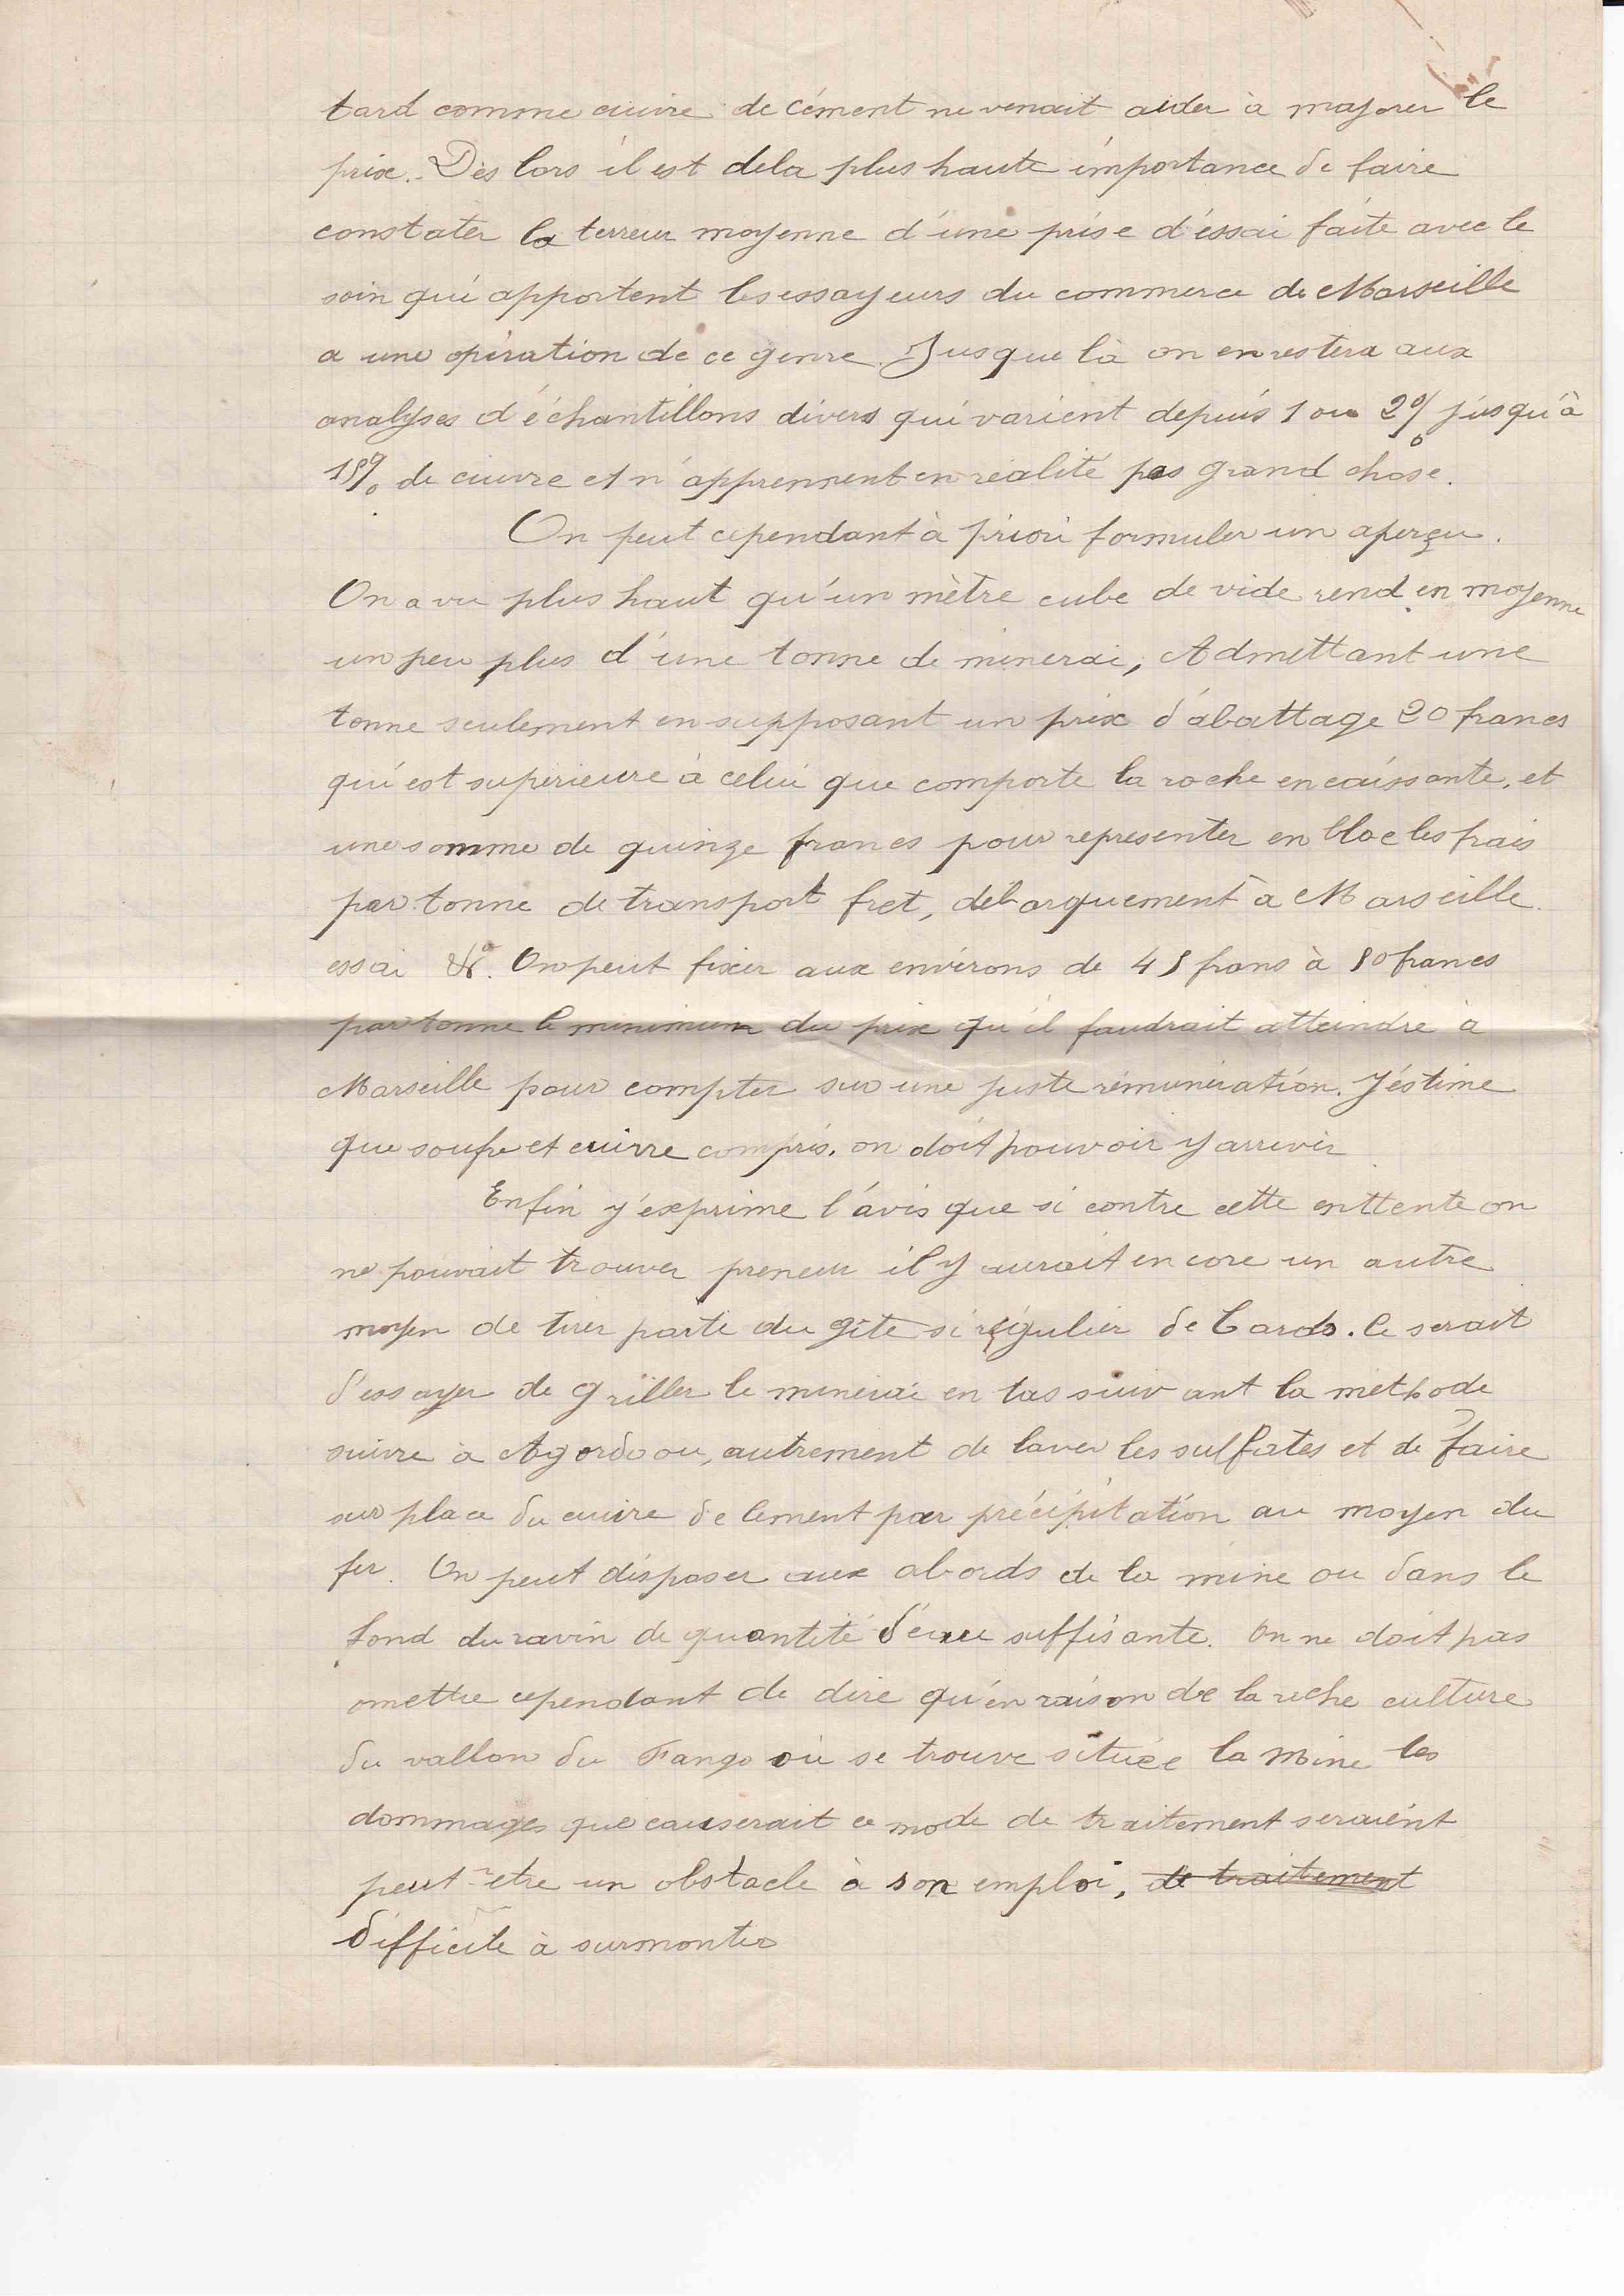 tard comme cuivre de cément ne venait aider à majorer le
prix. Dès lors il est de la plus haute importance de faire
constater la terreur moyenne d'une prise d'essai faite avec le
soin qui apportent les essayeurs du commerce de Marseille
a une opération de ce genre. Jusque là on en restera aux
analyses d'échantillons divers qui varient depuis 1 ou 2% jusqu'à
15% de cuivre et n'apprennent en réalité pas grand chose.
On peut cependant à priori formuler un aperçu.
On a vu plus haut qu'un mètre cube de vide rend en moyenne
un peu plus d'une tonne de minerai, Admettant une
tonne seulement en supposant un prix d'abattage 20 francs
qui est superieure à celui que comporte la roche encaissante, et
une somme de quinze francs pour representer en bloc les frais
par tonne de transport fret, débarquement à Marseille
essai &a. On peut fixer aux environs de 45 frans à 50 francs
par tonne le minimum du prix qu'il faudrait atteindre à
Marseille pour compter sur une juste rémunération. J'éstime
que soufre et cuivre compris, on doit pouvoir y arriver
Enfin j'exprime l'avis que si contre cette enttente on
ne pouvait trouver preneur il y aurait encore un autre
moyen de tirer parti du gîte si régulier de Cardo. Ce serait
d'essayer de griller le minerai en tas suivant la methode
suivre à Agordo ou, autrement de laver les sulfates et de faire
sur place du cuivre de cement par précipitation au moyen du
fer. On peut disposer aux abords de la mine ou dans le
fond du ravin de quantité d'eau suffisante. On ne doit pas
omettre cependant de dire qu'en raison de la riche culture
du vallon du Fango où se trouve située la Mine les
dommages que causerait ce mode de traitement seraient
peut-etre un obstacle à son emploi, de traitement
difficile à surmonter